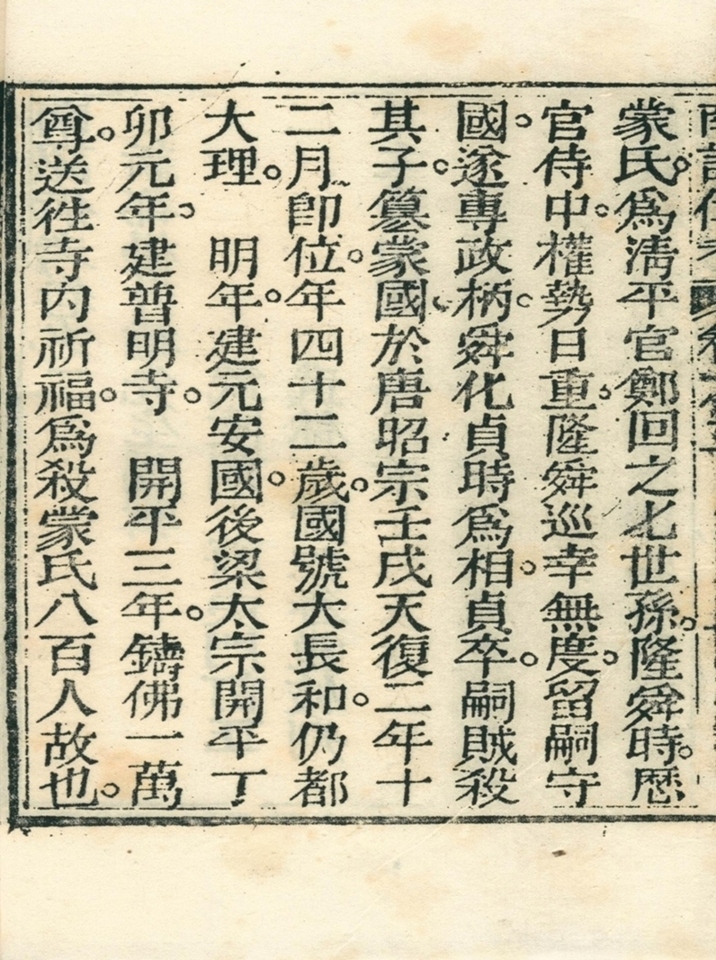 蒙氏。爲淸平官鄭回之七世孫。隆舜時。歷
官侍中。權勢日重。隆舜巡幸無度。留嗣守
國。遂專政柄。舜化貞時爲相。貞卒。嗣賊殺
其子。簒蒙國。於唐昭宗壬戌天復二年十
二月卽位。年四十二歲。國號大長和。仍都
大理。　明年。建元安國。後梁太宗開平丁
卯元年。建普明寺。　開平三年。鑄佛一萬
尊。送徃寺內祈福。爲殺蒙氏八百人故也。